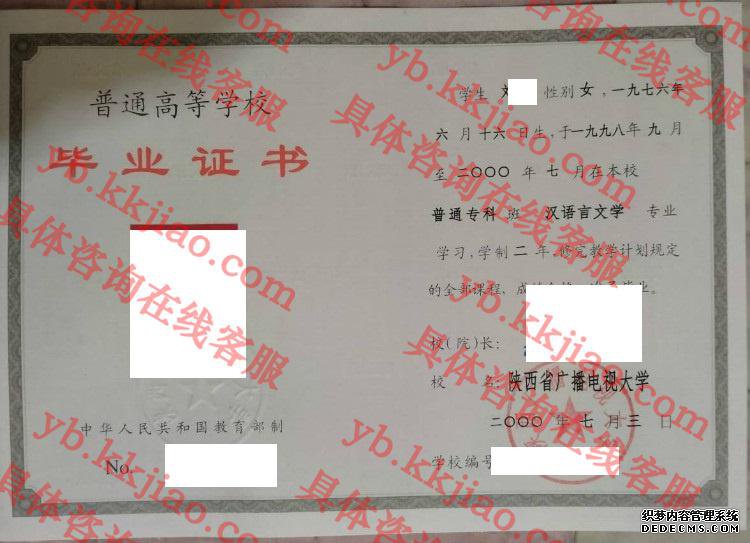 普通高等学校
毕业证书
中华人民共和国教育部制
No.
学生 刘 性别 女，一九七六年
六月十六日生，于一九九八年九月
至二〇〇〇年七月在本校
普通专科 班 汉语言文学 专业
学习，学制二年，修完教学计划规定
的全部课程，成绩合格，准予毕业。
校（院）长：
校 名：陕西省广播电视大学
二〇〇〇年七月三日
学校编号
yb.kkjiao.com
具体咨询在线客服
yb.kkjiao.com
具体咨询在线客服
yb.kkjiao.com
具体咨询在线客服
yb.kkjiao.com
具体咨询在线客服
yb.kkjiao.com
具体咨询在线客服
yb.kkjiao.com
具体咨询在线客服
织梦内容管理系统
DEDECMS.COM